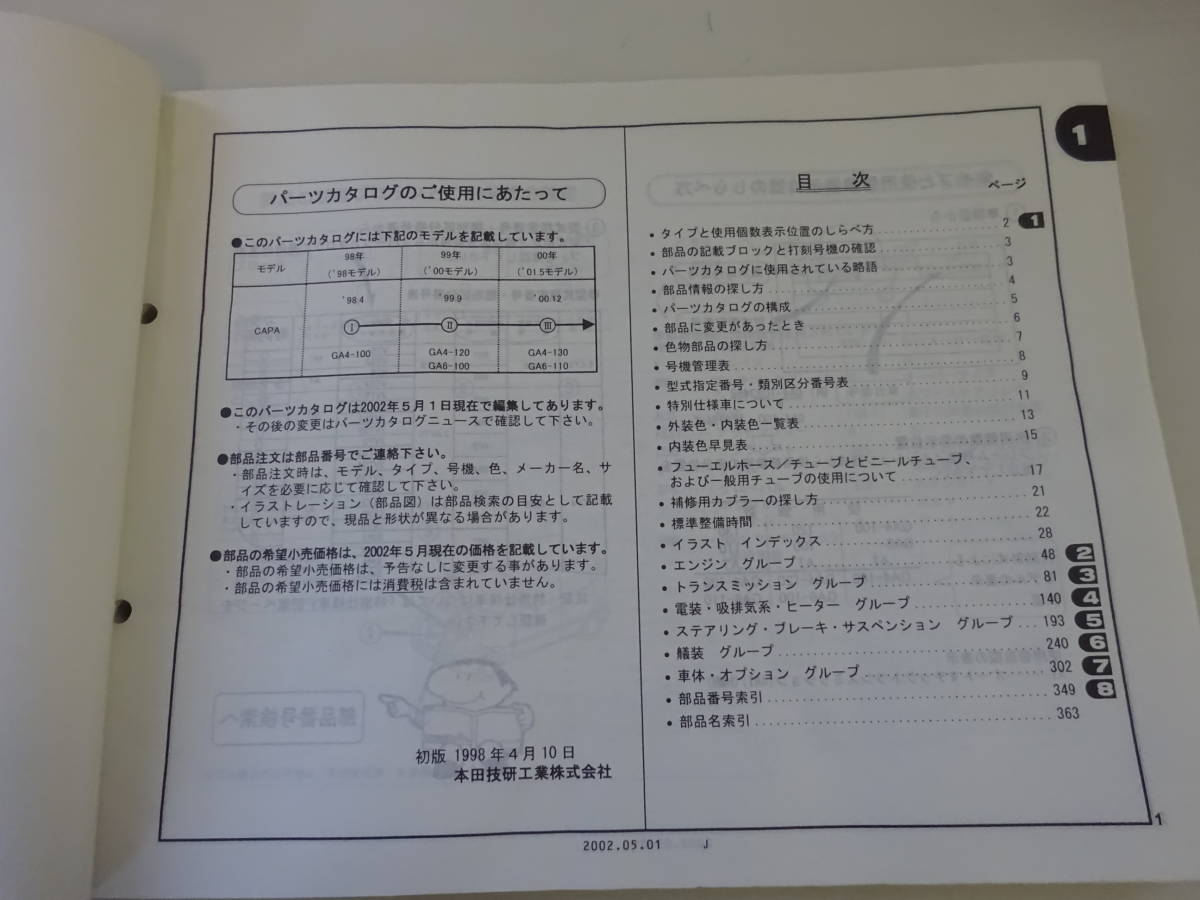 パーツカタログのご使用にあたって
●このパーツカタログには下記のモデルを記載しています。
モデル 98年 ('98モデル) 99年 ('00モデル) 00年 ('01.5モデル)
'98.4 '99.9 '00.12
CAPA Ⅰ Ⅱ Ⅲ
GA4-100 GA4-120 GA4-130
GA6-100 GA6-110
●このパーツカタログは2002年5月1日現在で編集してあります。
・その後の変更はパーツカタログニュースで確認して下さい。
●部品注文は部品番号でご連絡下さい。
・部品注文時は、モデル、タイプ、号機、色、メーカー名、サ
イズを必要に応じて確認して下さい。
・イラストレーション（部品図）は部品検索の目安として記載
していますので、現品と形状が異なる場合があります。
●部品の希望小売価格は、2002年5月現在の価格を記載しています。
・部品の希望小売価格は、予告なしに変更する事があります。
・部品の希望小売価格には消費税は含まれていません。
初版 1998年4月10日
本田技研工業株式会社
1
目 次
ページ
・タイプと使用個数表示位置のしらべ方 2 1
・部品の記載ブロックと打刻号機の確認 3
・パーツカタログに使用されている略語 3
・部品情報の探し方 4
・パーツカタログの構成 5
・部品に変更があったとき 6
・色物部品の探し方 7
・号機管理表 8
・型式指定番号・類別区分番号表 9
・特別仕様車について 11
・外装色・内装色一覧表 13
・内装色早見表 15
・フューエルホース／チューブとビニールチューブ、
および一般用チューブの使用について 17
・補修用カプラーの探し方 21
・標準整備時間 22
・イラスト インデックス 28
・エンジン グループ 48 2
・トランスミッション グループ 81 3
・電装・吸排気系・ヒーター グループ 140 4
・ステアリング・ブレーキ・サスペンション グループ 193 5
・艤装 グループ 240 6
・車体・オプション グループ 302 7
・部品番号索引 349 8
・部品名索引 363
1
2002.05.01 J